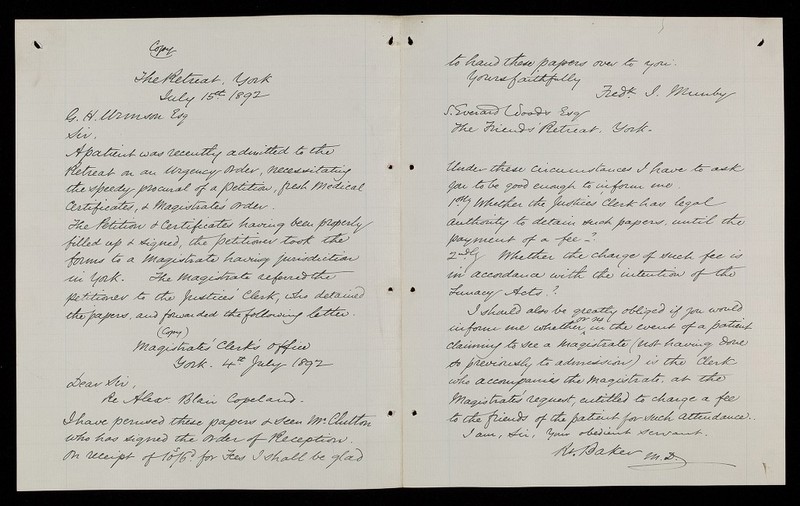 Copy
The Retreat. York
July 15th 1892
G. H. Urmson Esq
Sir.
A patient was recently admitted to the
Retreat on an urgency Order, necessitating
the speedy procural of a Petition, fresh Medical
Certificates, & Magistrate's Order.
The Petition & Certificates having been properly
filled up & signed, the petitioner took the
forms to a Magistrate having jurisdiction
in York. The Magistrate referred the
petitioner to the Justices' Clerk, who detained
the papers, and forwarded the following letter.
(Copy)
Magistrates' Clerk's Office
York. 4th July 1892
Dear Sir,
Re Alexr Blair Copeland.
I have perused these papers & seen Mr. Clutton
who has signed the Order of Reception.
On receipt of 10s/6d for Fees I shall be glad
to hand these papers over to you.
Yours faithfully
Fredk. J. Munby
S. Everard Woods Esq
The Friends' Retreat. York.
Under these circumstances I have to ask
you to be good enough to inform me.
1stly Whether the Justices Clerk has legal
authority to detain such papers, until the
payment of a fee?
2ndly Whether the charge of such fee is
in accordance with the intention of the
Lunacy Acts?
I should also be greatly obliged if you would
inform me whether or no, in the event of a patient
claiming to see a Magistrate (not having done
so previously to admission) is the Clerk
who accompanies the Magistrate, at the
Magistrates' request, entitled to charge a fee
to the friends of the patient for such attendance.
I am, Sir, Your obedient servant.
R. Baker M.D.